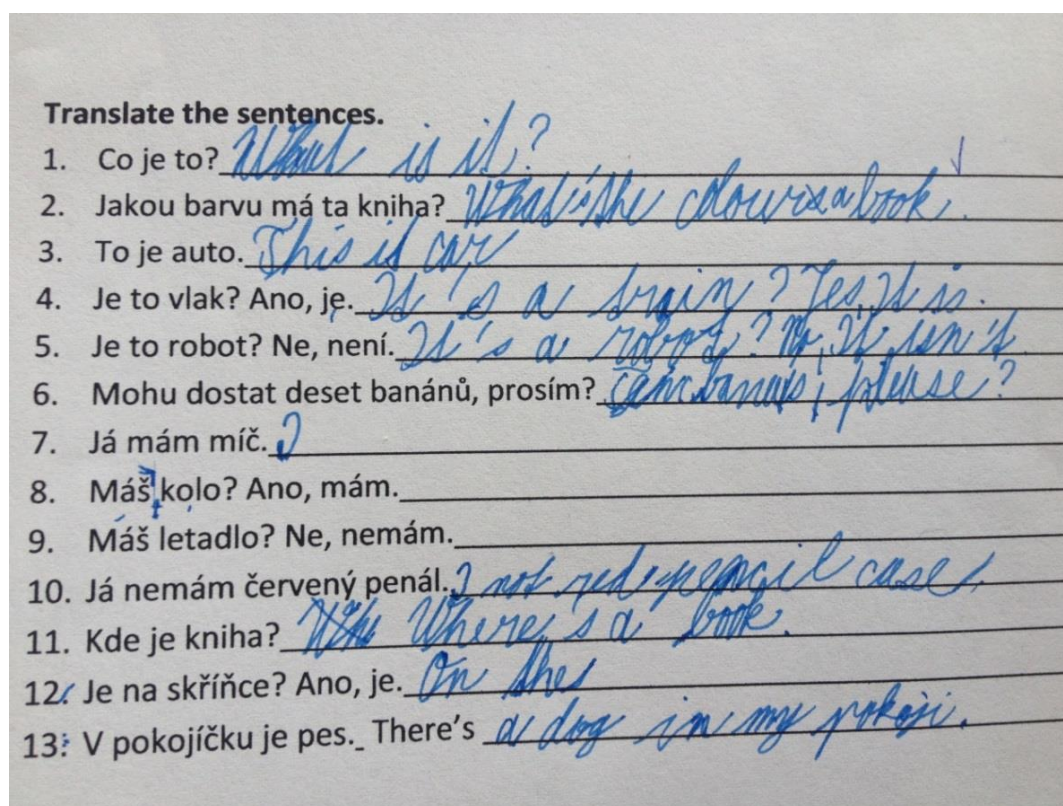 Translate the sentences.
1. Co je to? What is it?
2. Jakou barvu má ta kniha? What's the colour is a book.
3. To je auto. This is car
4. Je to vlak? Ano, je. It's a train? Yes, It is.
5. Je to robot? Ne, není. It's a robot? No, It isn't
6. Mohu dostat deset banánů, prosím? please?
7. Já mám míč. I
8. Máš kolo? Ano, mám.
9. Máš letadlo? Ne, nemám.
10. Já nemám červený penál. I not red pencil case.
11. Kde je kniha? Where's a book.
12. Je na skříňce? Ano, je. On the
13. V pokojíčku je pes. There's a dog in my pokoji.